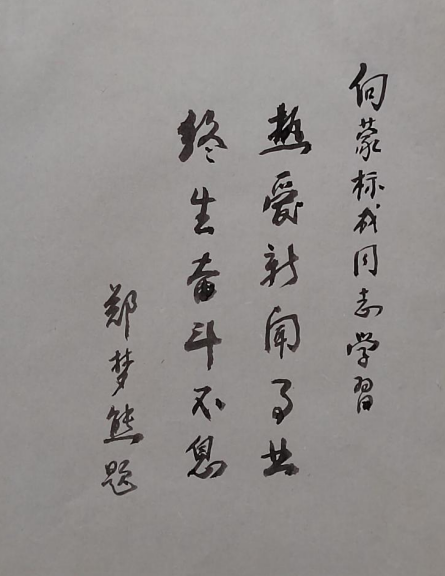 向蒙标同志学習
热爱新闻事业
终生奋斗不息
郑梦熊题